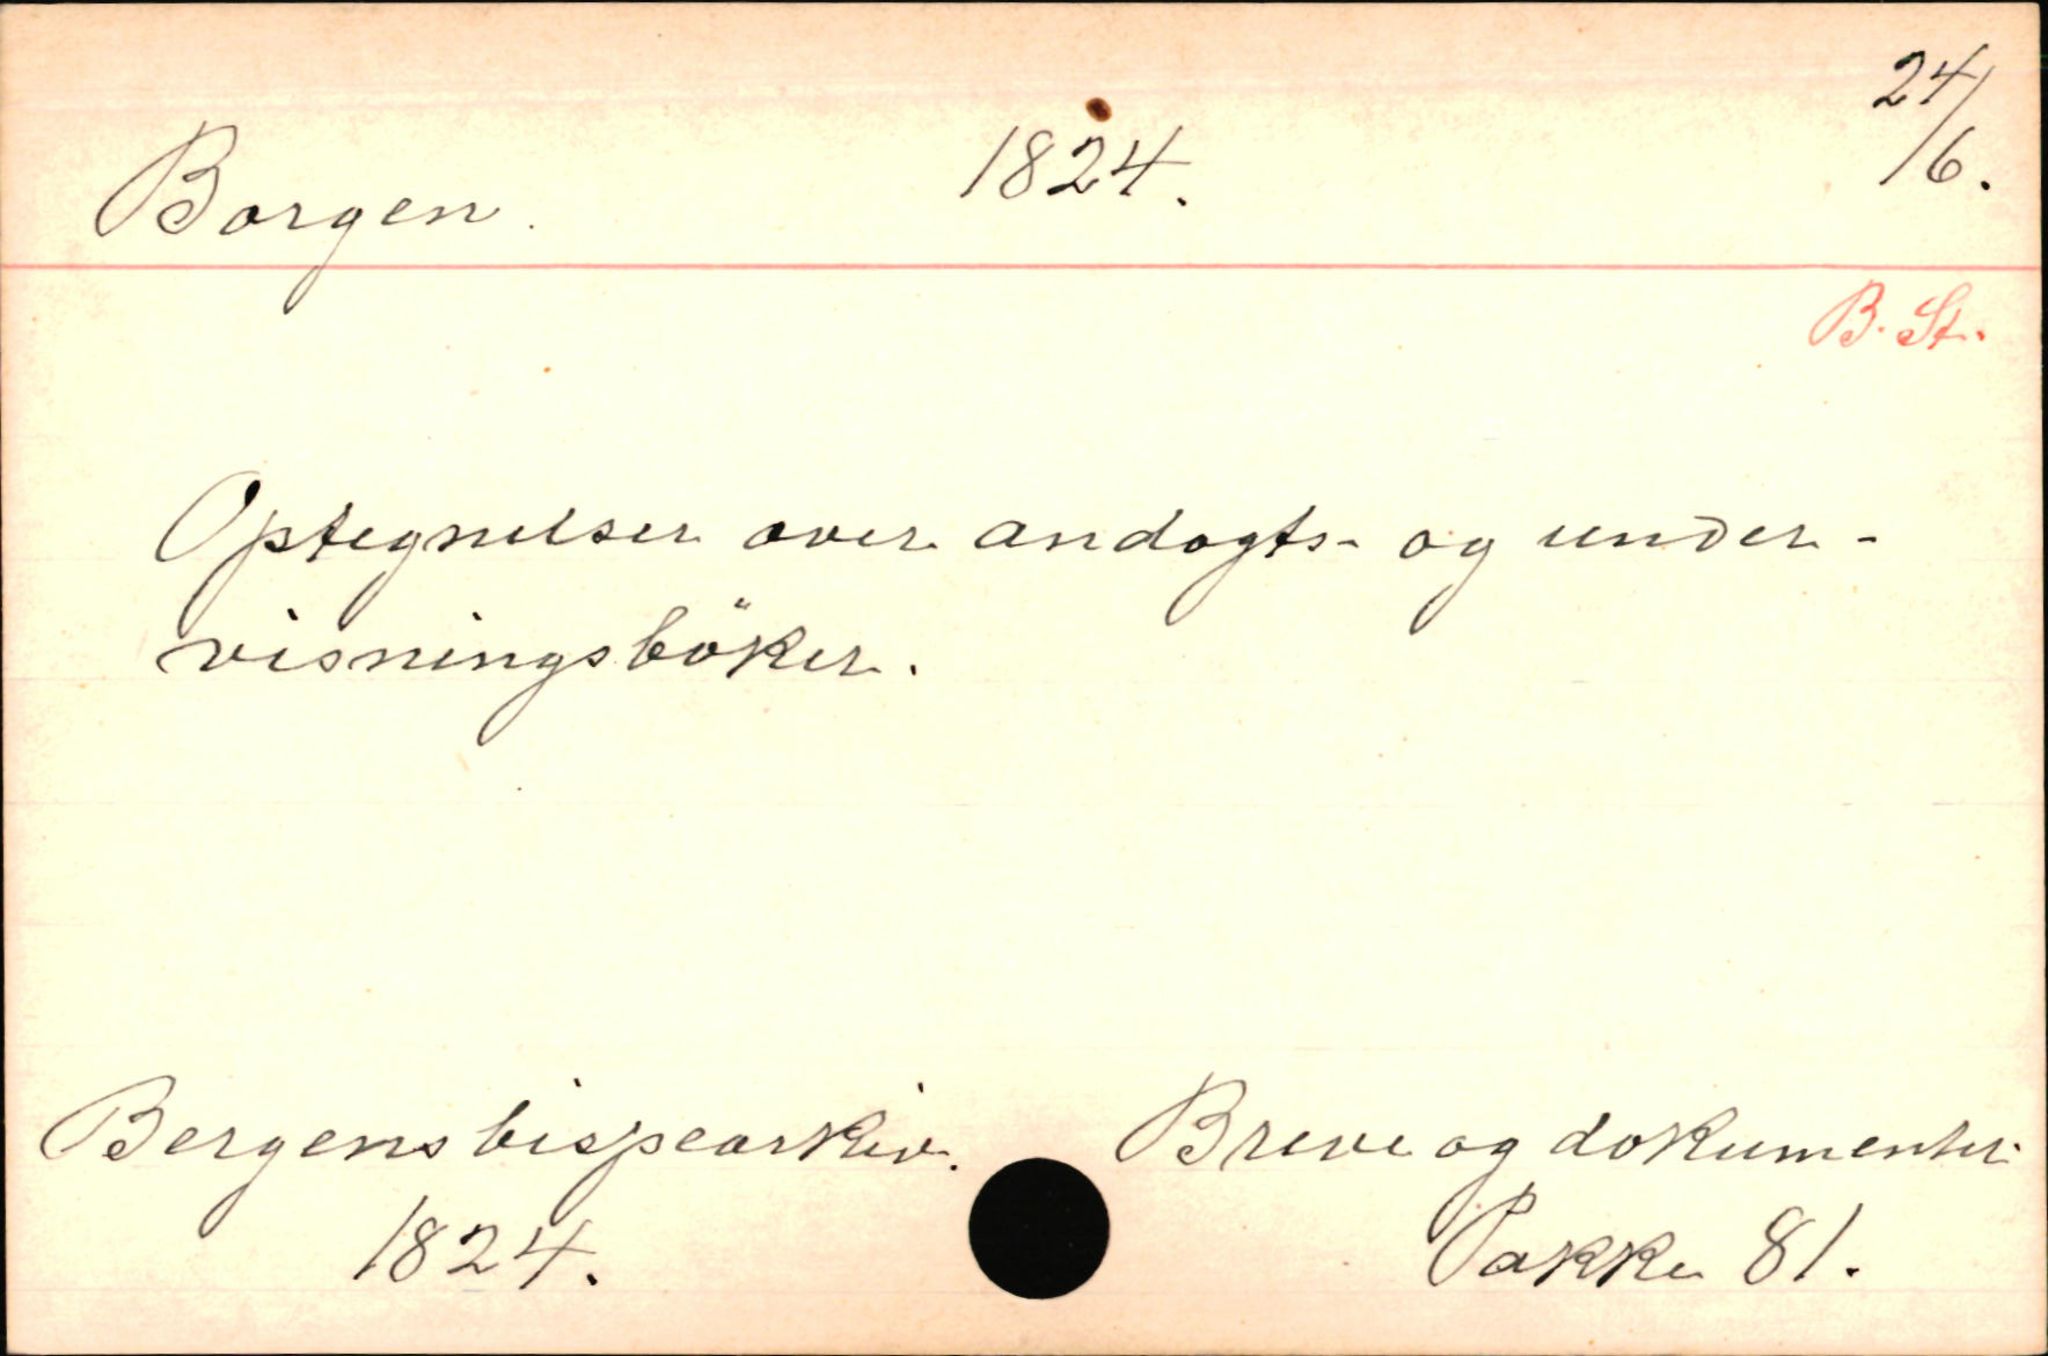 Borgen. 1824. 24/6.
B. St.
Optegnelser over andagts- og under-
visningsböker.
Bergens bispearkiv. Breve og dokumenter.
1824. Pakke 81.